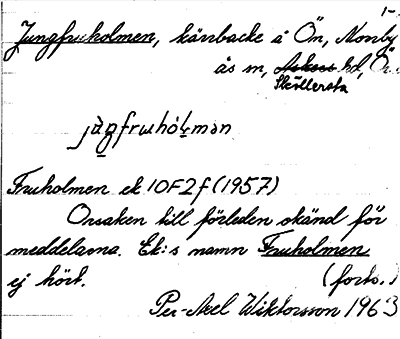 1-
Jungfruholmen, kärrbacke å Ön, Norrby
ås m, Askers hd, Ör.
Sköllersta
Fruholmen ek 10F2f (1957)
Orsaken till förleden okänd för
meddelarna. Ek:s namn Fruholmen
ej hört. (forts.)
Per-Axel Wiktorsson 1963